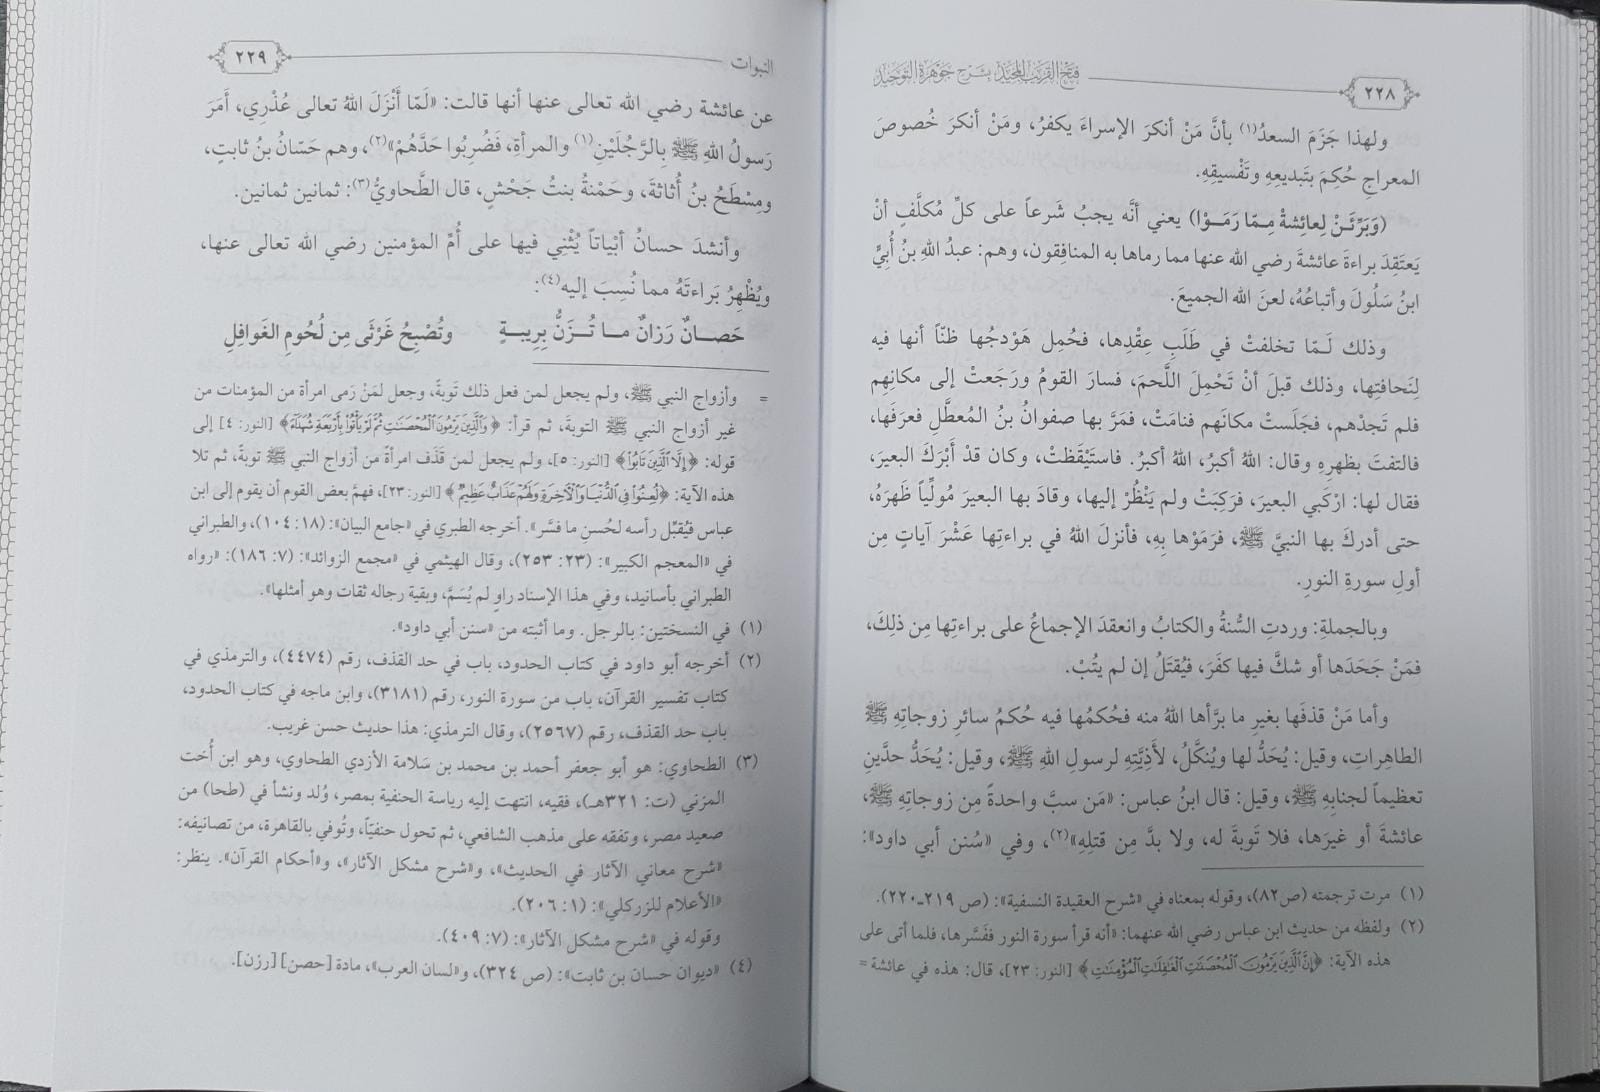 فتح القريب المجيد بشرح جوهرة التوحيد
٢٢٨
ولهذا جَزَمَ السعدُ(١) بأنَّ مَنْ أنكرَ الإسراءَ يكفرُ، ومَنْ أنكرَ خُصوصَ
المعراجِ حُكِمَ بتَبديعِهِ وتَفْسيقِهِ.
(وَبَرِّئَنْ لِعائِشةْ مِـمّا رَمَـوْا) يعني أنَّه يجبُ شَرعاً على كلِّ مُكلَّفٍ أنْ
يَعتقِدَ براءةَ عائشةَ رضي الله عنها مما رماها به المنافِقون، وهم: عبدُ اللهِ بنُ أُبيٍّ
ابنُ سَلُولَ وأتباعُهُ، لعنَ الله الجميعَ.
وذلك لَـمّا تخلفتْ في طَلَبِ عِقْدِها، فحُمِل هَوْدجُها ظنّاً أنها فيه
لِنَحافتِها، وذلك قبلَ أنْ تَحْمِلَ اللَّحمَ، فسارَ القومُ ورَجَعتْ إلى مكانِهِم
فلم تَجدْهم، فجَلَستْ مكانَهم فنامَتْ، فمَرَّ بها صفوانُ بنُ المُعطَّلِ فعرَفَها،
فالتفتَ بظهرِهِ وقال: اللهُ أكبرُ، اللهُ أكبرُ. فاستَيْقَظتْ، وكان قدْ أَبْرَكَ البعيرَ،
فقال لها: ارْكَبي البعيرَ، فرَكِبَتْ ولم يَنْظُرْ إليها، وقادَ بها البعيرَ مُولِّياً ظَهرَهُ،
حتى أدركَ بها النبيَّ ﷺ، فرَمَوْها بِهِ، فأنزلَ اللهُ في براءتِها عَشْرَ آياتٍ مِن
أولِ سورةِ النورِ.
وبالجملةِ: وردتِ السُّنةُ والكتابُ وانعقدَ الإجماعُ على براءتِها مِن ذلِكَ،
فمَنْ جَحَدَها أو شكَّ فيها كفَرَ، فيُقتَلُ إن لم يتُبْ.
وأما مَنْ قذفَها بغيرِ ما برَّأها اللهُ منه فحُكمُها فيه حُكمُ سائرِ زوجاتِهِ ﷺ
الطاهِراتِ، وقيل: يُحَدُّ لها ويُنكَّلُ، لأَذِيَّتِهِ لرسولِ اللهِ ﷺ، وقيل: يُحَدُّ حدَّينِ
تعظيماً لجنابِهِ ﷺ، وقيل: قال ابنُ عباس: «مَن سبَّ واحدةً مِن زوجاتِهِ ﷺ،
عائشةَ أو غيرَها، فلا تَوبةَ له، ولا بدَّ مِن قتلِهِ»(٢)، وفي «سُنن أبي داود»:
(١) مرت ترجمته (ص٨٢)، وقوله بمعناه في «شرح العقيدة النسفية»: (ص ٢١٩ـ٢٢٠).
(٢) ولفظه من حديث ابن عباس رضي الله عنهما: «أنه قرأ سورة النور ففسَّرها، فلما أتى على
هذه الآية: ﴿إِنَّ ٱلَّذِينَ يَرْمُونَ ٱلْمُحْصَنَٰتِ ٱلْغَٰفِلَٰتِ ٱلْمُؤْمِنَٰتِ﴾ [النور: ٢٣]، قال: هذه في عائشة =
النبوات
٢٢٩
عن عائشة رضي الله تعالى عنها أنها قالت: «لَمّا أَنْزَلَ اللهُ تعالى عُذْرِي، أَمَرَ
رَسولُ اللهِ ﷺ بِالرَّجُلَيْنِ(١) والمرأةِ، فَضُرِبُوا حَدَّهُمْ»(٢)، وهم حَسّانُ بنُ ثابتٍ،
ومِسْطَحُ بنُ أُثاثةَ، وحَمْنةُ بنتُ جَحْشٍ، قال الطَّحاويُّ(٣): ثمانين ثمانين.
وأنشدَ حسانُ أبْياتاً يُثْنِي فيها على أُمِّ المؤمنين رضي الله تعالى عنها،
ويُظْهِرُ بَراءتَهُ مما نُسِبَ إليه(٤):
حَصـــانٌ رَزانٌ مـــا تُـــزَنُّ بِرِيبـــةٍ وتُصْبِحُ غَرْثَى مِن لُحُومِ الغَوافِلِ
= وأزواج النبي ﷺ، ولم يجعل لمن فعل ذلك تَوبةً، وجعل لمَنْ رَمى امرأة من المؤمنات من
غير أزواج النبي ﷺ التوبةَ، ثم قرأ: ﴿وَٱلَّذِينَ يَرْمُونَ ٱلْمُحْصَنَٰتِ ثُمَّ لَمْ يَأْتُوا۟ بِأَرْبَعَةِ شُهَدَآءَ﴾ [النور: ٤] إلى
قوله: ﴿إِلَّا ٱلَّذِينَ تَابُوا۟﴾ [النور: ٥]، ولم يجعل لمن قَذَف امرأةً من أزواج النبي ﷺ توبةً، ثم تلا
هذه الآية: ﴿لُعِنُوا۟ فِى ٱلدُّنْيَا وَٱلْءَاخِرَةِ وَلَهُمْ عَذَابٌ عَظِيمٌ﴾ [النور: ٢٣]، فهمَّ بعض القوم أن يقوم إلى ابن
عباس فيُقبِّل رأسه لحُسنِ ما فسَّر». أخرجه الطبري في «جامع البيان»: (١٨: ١٠٤)، والطبراني
في «المعجم الكبير»: (٢٣: ٢٥٣)، وقال الهيثمي في «مجمع الزوائد»: (٧: ١٨٦): «رواه
الطبراني بأسانيد، وفي هذا الإسناد راوٍ لم يُسَمَّ، وبقية رجاله ثقات وهو أمثلها».
(١) في النسختين: بالرجل. وما أثبته من «سنن أبي داود».
(٢) أخرجه أبو داود في كتاب الحدود، باب في حد القذف، رقم (٤٤٧٤)، والترمذي في
كتاب تفسير القرآن، باب من سورة النور، رقم (٣١٨١)، وابن ماجه في كتاب الحدود،
باب حد القذف، رقم (٢٥٦٧)، وقال الترمذي: هذا حديث حسن غريب.
(٣) الطحاوي: هو أبو جعفر أحمد بن محمد بن سَلامة الأزدي الطحاوي، وهو ابن أُخت
المزني (ت: ٣٢١هـ)، فقيه، انتهت إليه رياسة الحنفية بمصر، وُلد ونشأ في (طحا) من
صعيد مصر، وتفقه على مذهب الشافعي، ثم تحول حنفيّاً، وتُوفي بالقاهرة، من تصانيفه:
«شرح معاني الآثار في الحديث»، و«شرح مشكل الآثار»، و«أحكام القرآن». ينظر:
«الأعلام للزركلي»: (١: ٢٠٦).
وقوله في «شرح مشكل الآثار»: (٧: ٤٠٩).
(٤) «ديوان حسان بن ثابت»: (ص ٣٢٤)، و«لسان العرب»، مادة [حصن] [رزن].